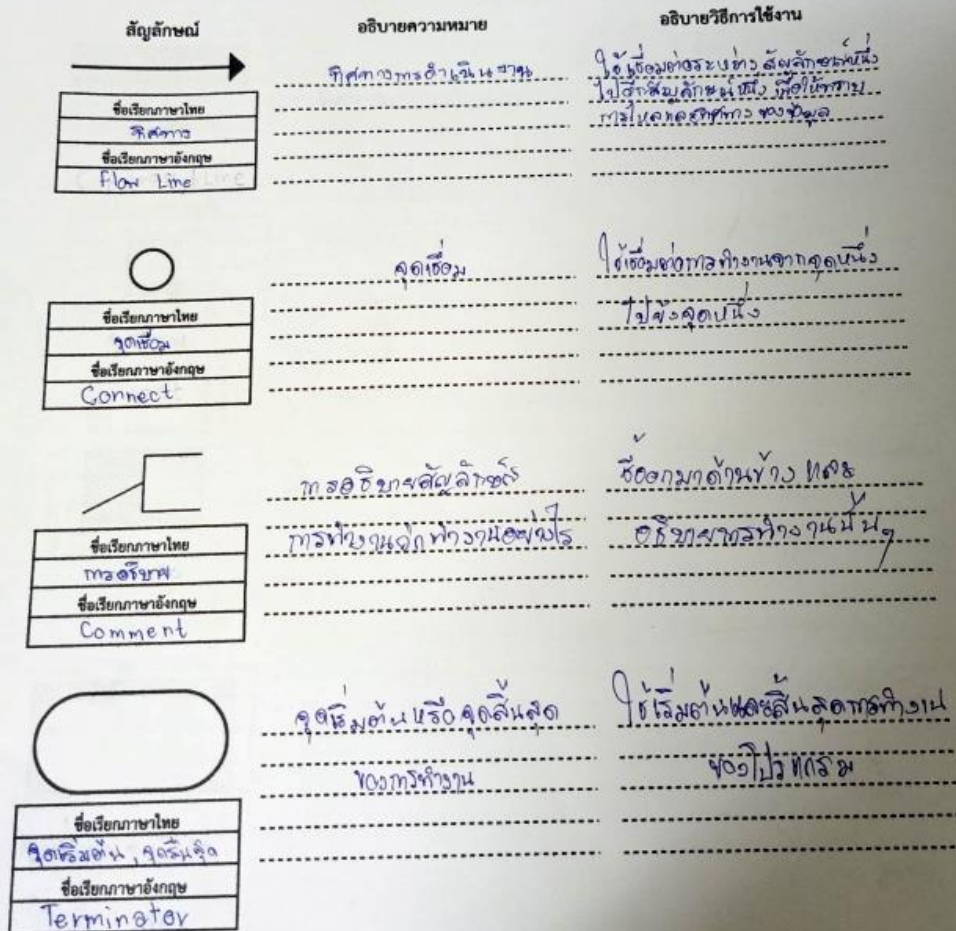 สัญลักษณ์
อธิบายความหมาย
อธิบายวิธีการใช้งาน
ทิศทางการดำเนินงาน
ใช้เชื่อมต่อระหว่าง สัญลักษณ์หนึ่ง
ไปอีกสัญลักษณ์หนึ่ง เพื่อให้ทราบ
การไหลและทิศทาง ของข้อมูล
ชื่อเรียกภาษาไทย
ทิศทาง
ชื่อเรียกภาษาอังกฤษ
Flow Line
จุดเชื่อม
ใช้เชื่อมต่อการทำงานจากจุดหนึ่ง
ไปยังจุดหนึ่ง
ชื่อเรียกภาษาไทย
จุดเชื่อม
ชื่อเรียกภาษาอังกฤษ
Connect
การอธิบายสัญลักษณ์
การทำงานว่าทำงานอย่างไร
ชี้ออกมาด้านข้าง และ
อธิบายการทำงานนั้นๆ
ชื่อเรียกภาษาไทย
การอธิบาย
ชื่อเรียกภาษาอังกฤษ
Comment
จุดเริ่มต้นหรือจุดสิ้นสุด
ของการทำงาน
ใช้เริ่มต้นและสิ้นสุดการทำงาน
ของโปรแกรม
ชื่อเรียกภาษาไทย
จุดเริ่มต้น, จุดสิ้นสุด
ชื่อเรียกภาษาอังกฤษ
Terminator